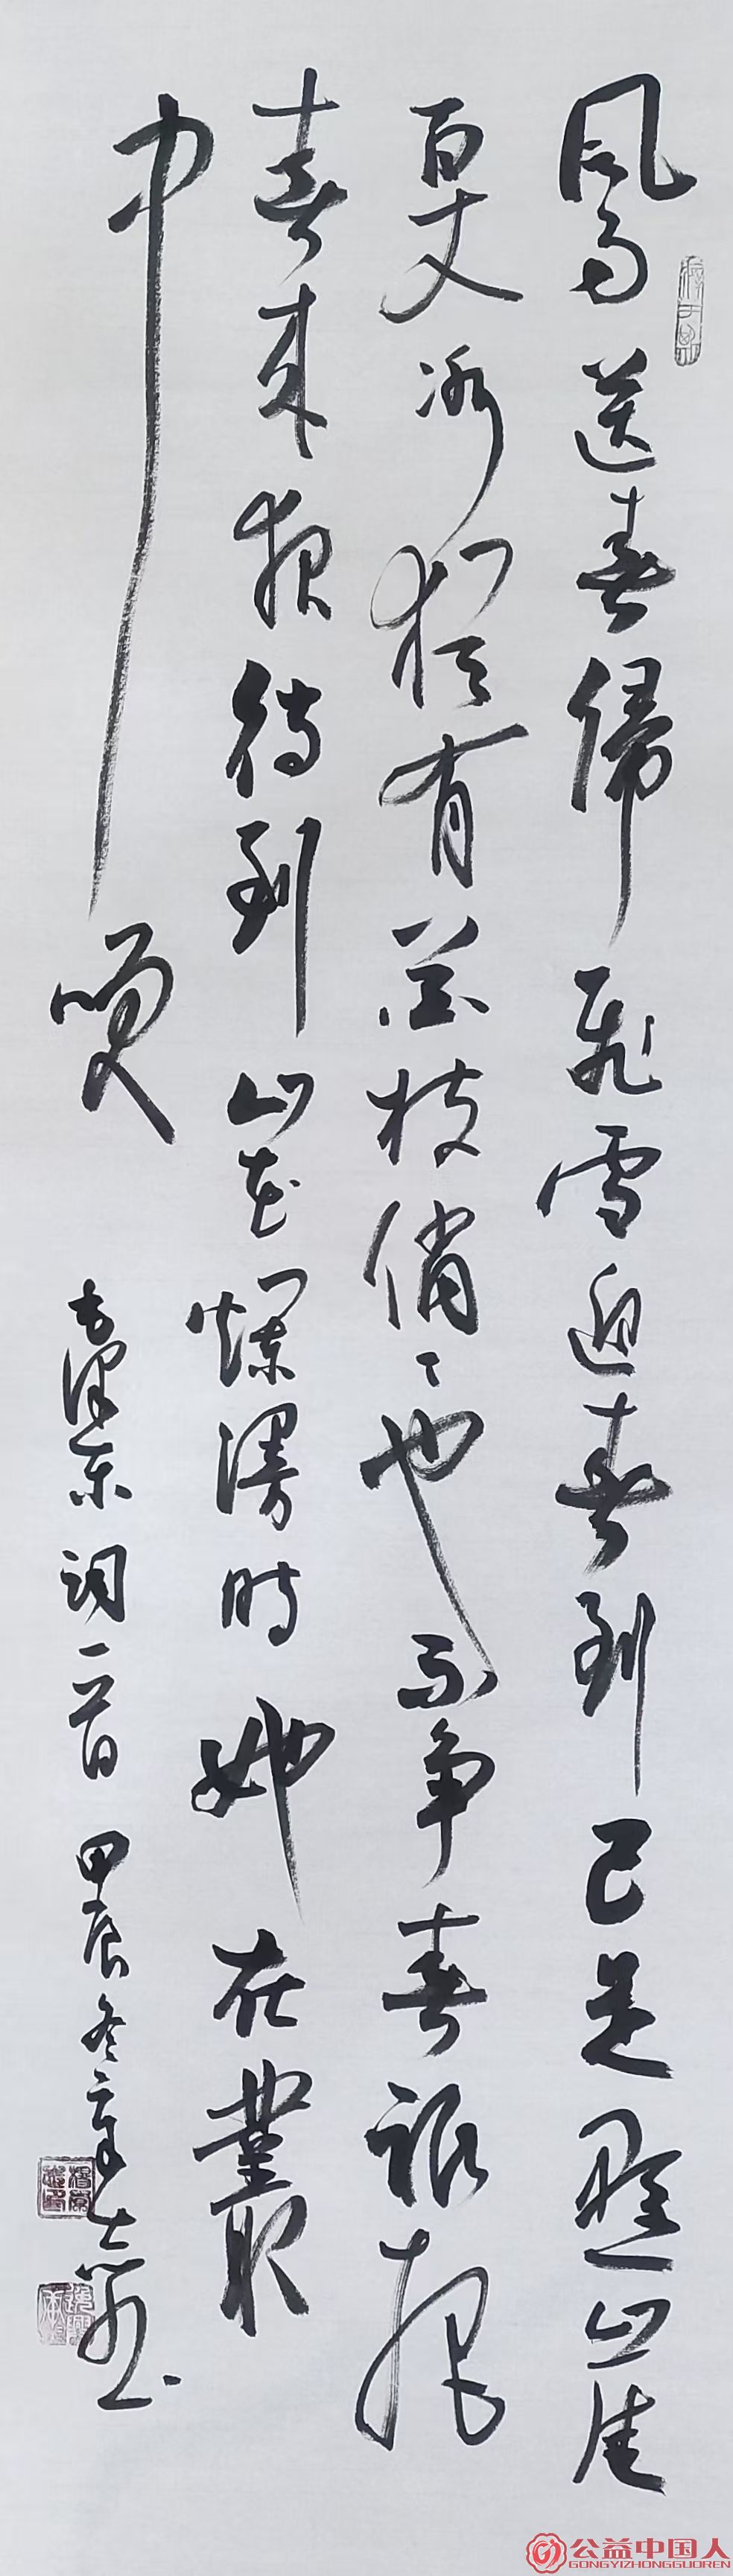 風雨送春歸飛雪迎春到已是懸崖
百丈冰猶有花枝俏〻也不争春祇把
春来報待到山花爛漫時她在叢
中咲
毛澤东詞一首 甲辰冬
公益中国人
GONGYIZHONGGUOREN